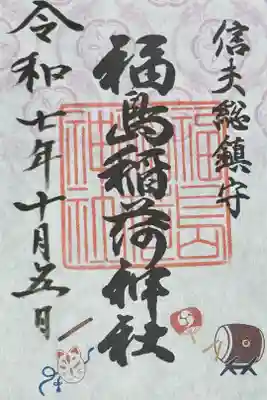 信夫総鎮守
福島稲荷神社
令和七年十月五日